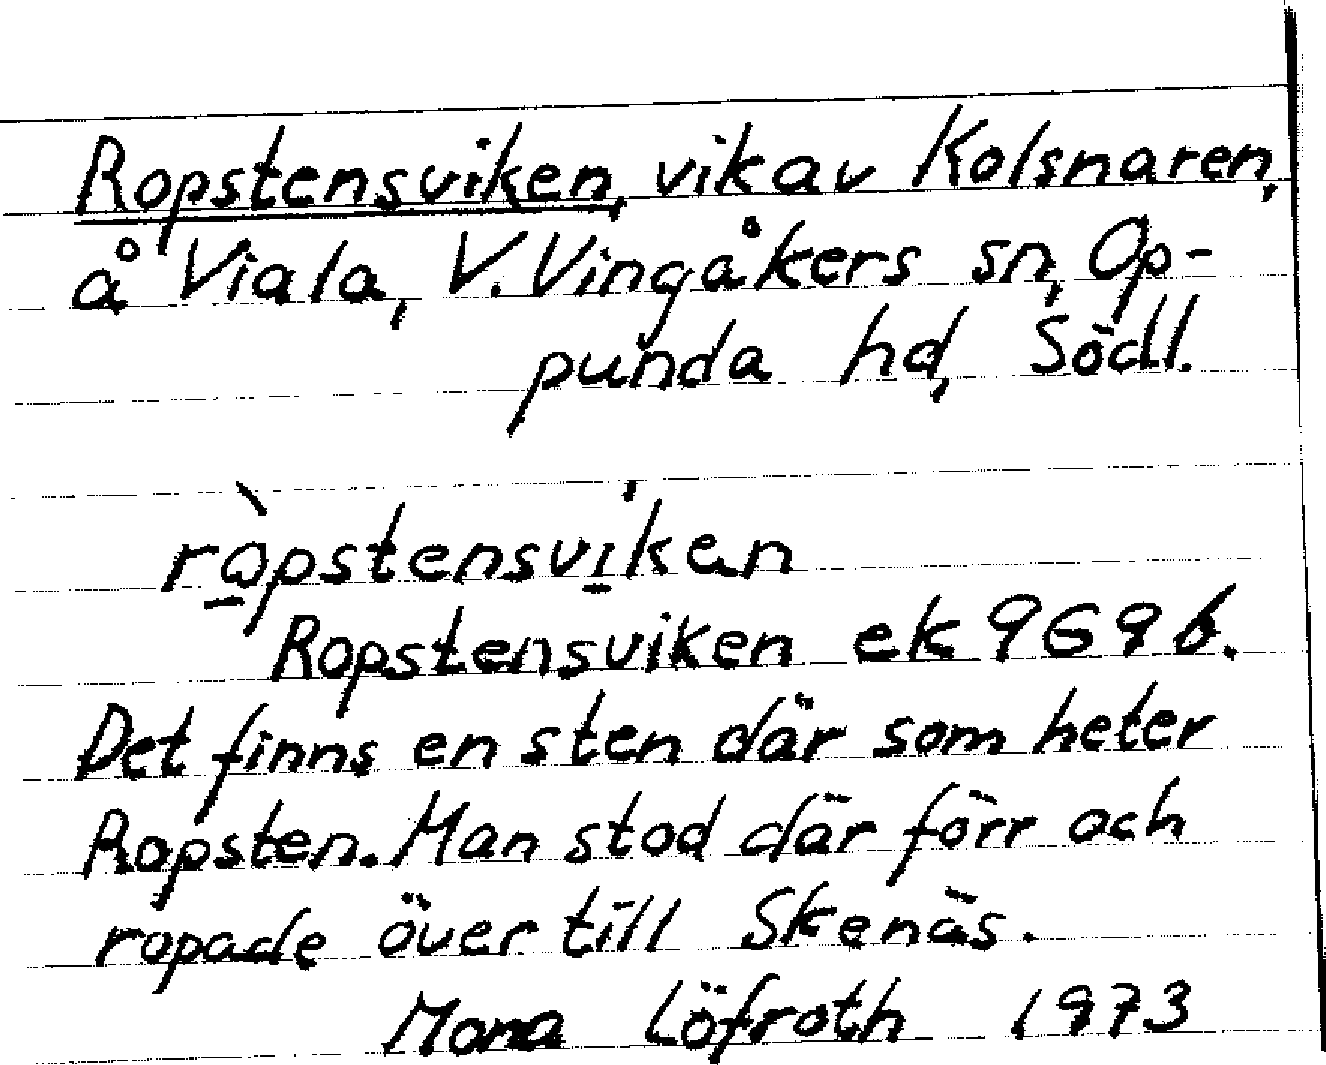 Ropstensviken, vik av Kolsnaren,
å Viala, V. Vingåkers sn, Op-
punda hd, Södl.
ròpstensvikan
Ropstensviken ek 969 b.
Det finns en sten där som heter
Ropsten. Man stod där förr och
ropade över till Skenäs.
Mona Löfroth 1973